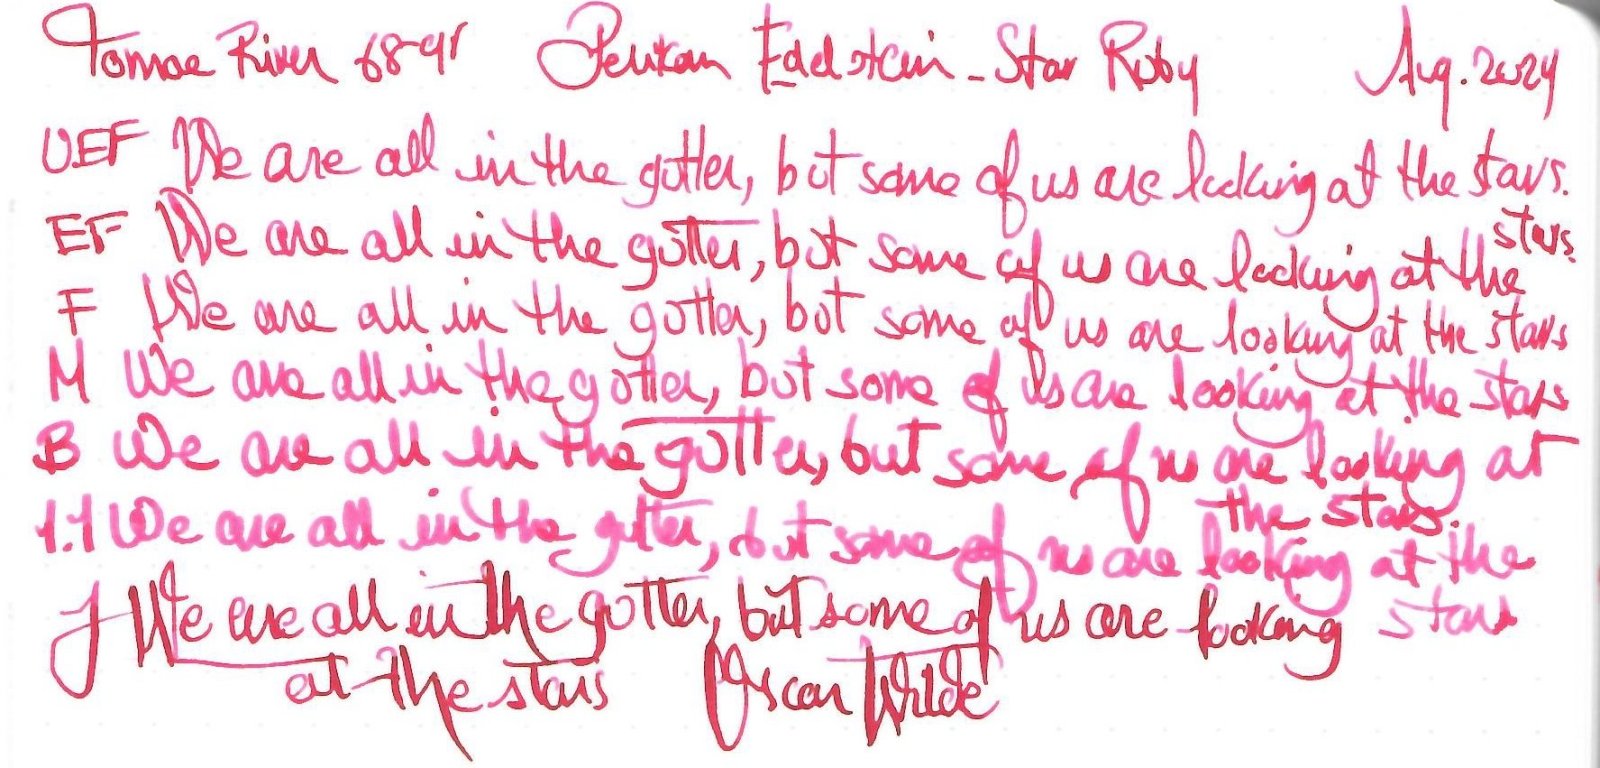 Tomoe River 68gr Pelikan Edelstein - Star Ruby Aug. 2024
UEF We are all in the gutter, but some of us are looking at the stars.
EF We are all in the gutter, but some of us are looking at the stars.
F We are all in the gutter, but some of us are looking at the stars
M We are all in the gutter, but some of us are looking at the stars
B We are all in the gutter, but some of us are looking at
the stars.
1.1 We are all in the gutter, but some of us are looking at the
stars
J We are all in the gutter, but some of us are looking
at the stars Oscar Wilde